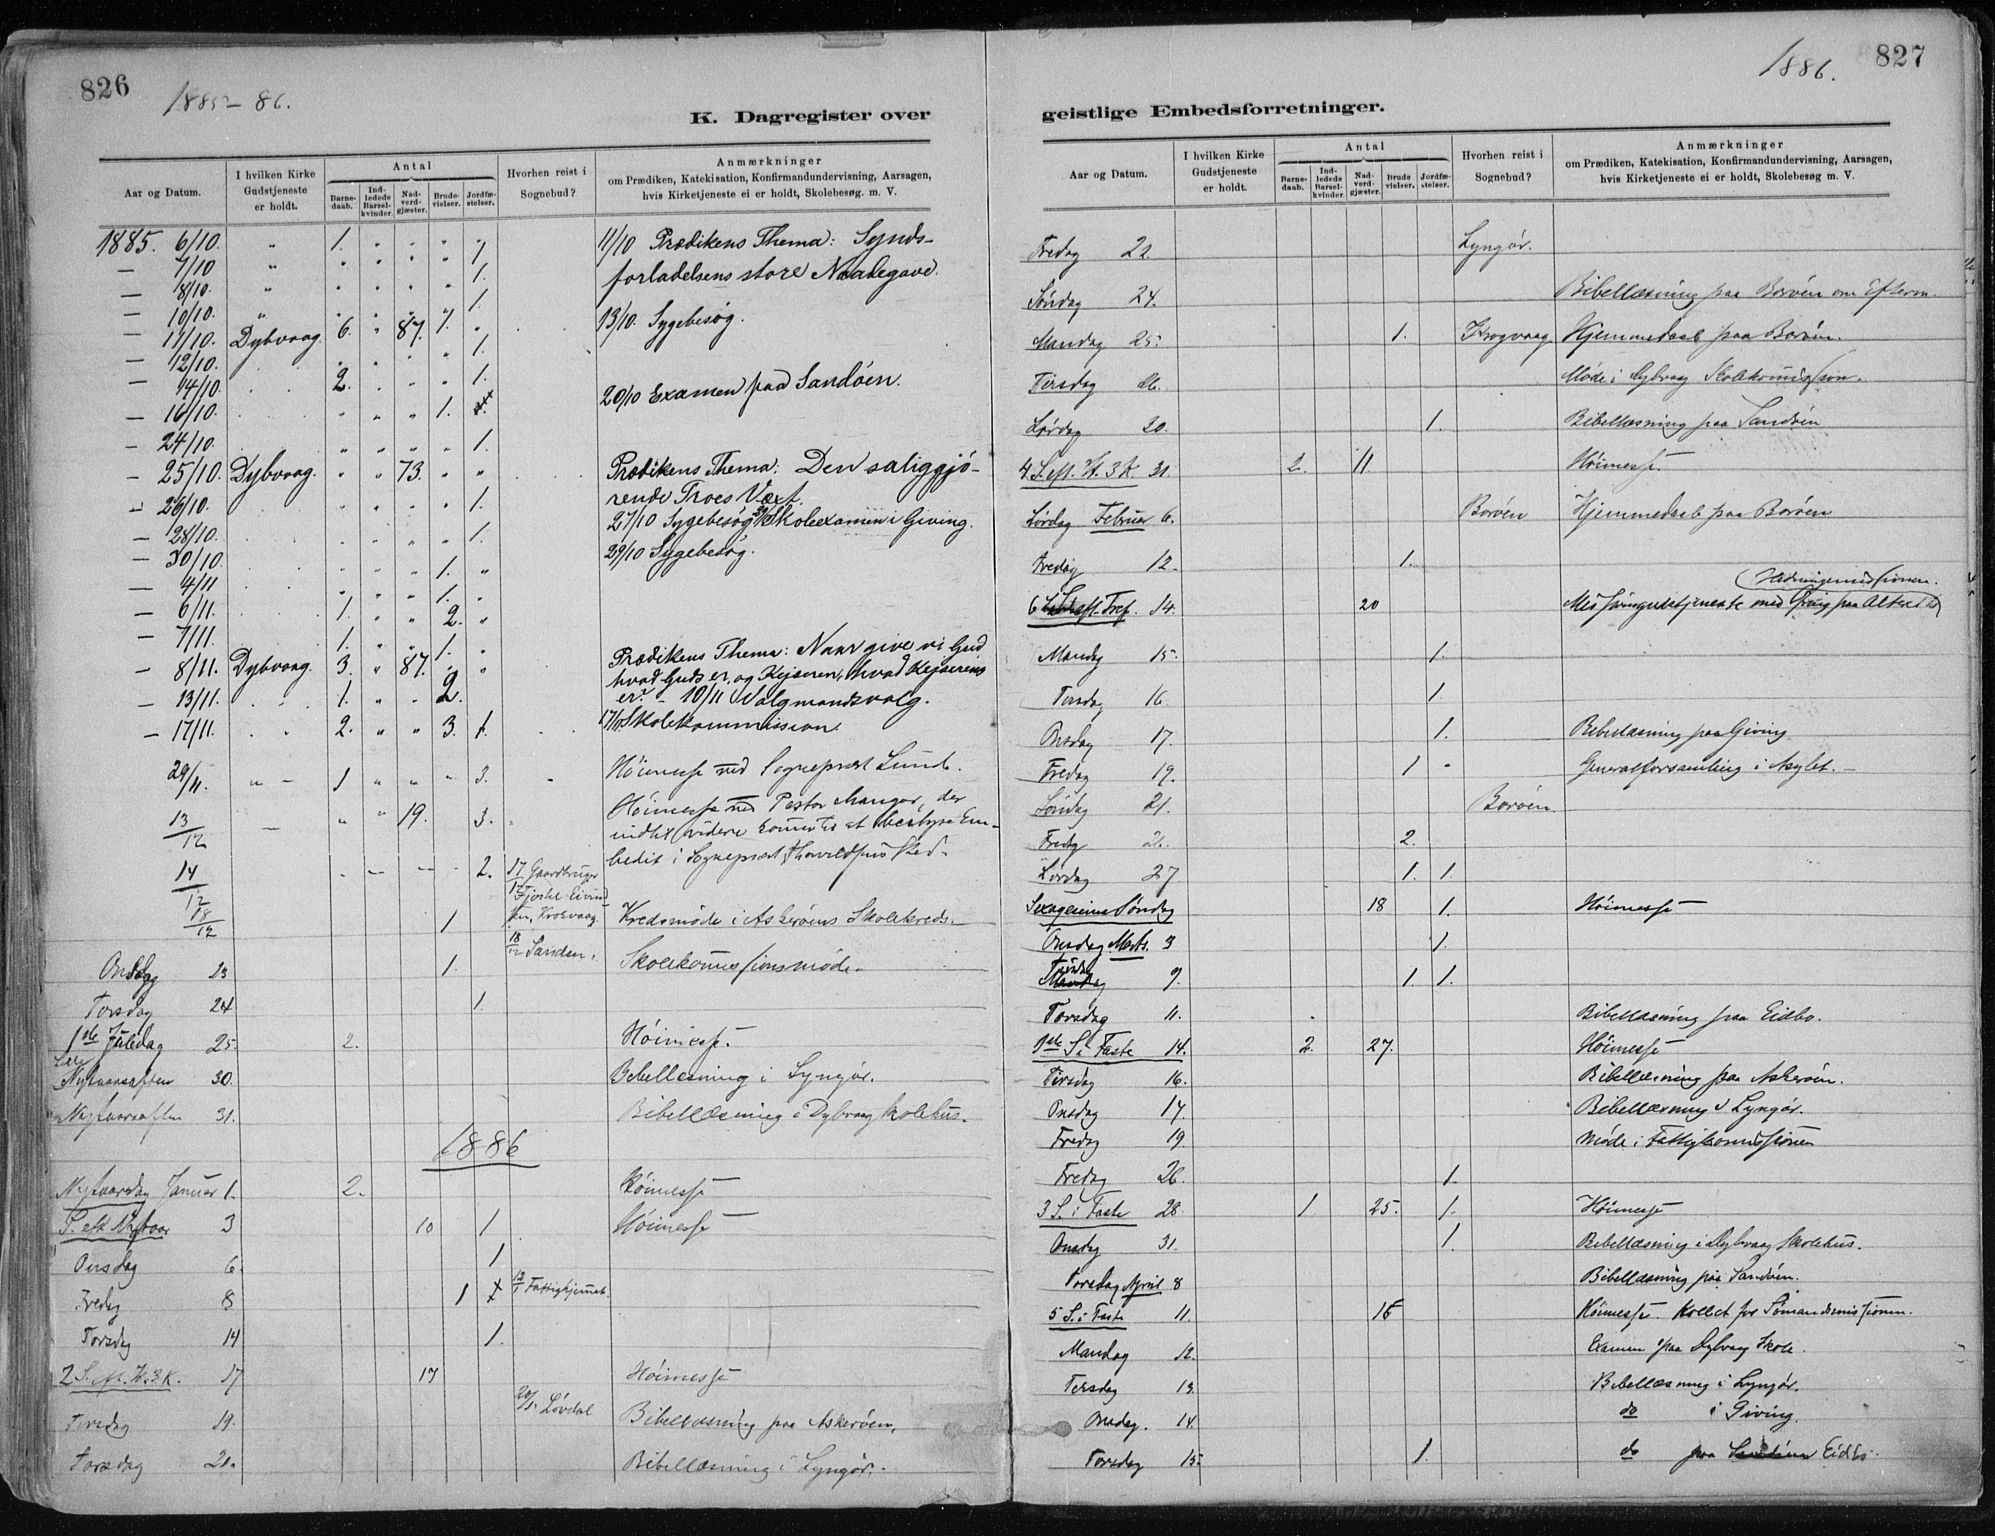 826
1885-86.
K. Dagregister over
Aar og Datum.
I hvilken Kirke Gudstjeneste er holdt.
Antal
Barnedaab.
Indledede Barselkvinder.
Nadverdgjæster.
Brudevielser.
Jordfæstelser.
Hvorhen reist i Sognebud?
Anmærkninger
om Prædiken, Katekisation, Konfirmandundervisning, Aarsagen,
hvis Kirketjeneste ei er holdt, Skolebesøg. m. V.
1885. 6/10. " 1. " " " " 11/10 Prædikens Thema: Synds-
— 7/10 " " " " " 1. forladelsens store Naadegave.
— 8/10. " " " " " 1.
— 10/10. " " " " " 1. 13/10. Sygebesøg.
— 11/10. Dybvaag. 6. " 87. 1. "
— 12/10. " " " " 1.
— 14/10. 2. " " " 1. 20/10 Examen paa Sandøen.
— 16/10. " " " 1.
— 24/10. " " " " 1.
— 25/10. Dybvaag. " " 73. " " Prædikens Thema: Den saliggjø-
rende Troes Væxt.
— 26/10. " " " " 1. 27/10 Sygebesøg Skoleexamen i Giving.
— 28/10. " " " " 1. 29/10 Sygebesøg.
— 30/10. " " " 1. "
— 4/11 " " " 1. "
— 6/11. 1. " " 2. "
— 7/11. 1. " " 1. " Prædikens Thema: Naar give vi Gud
— 8/11. Dybvaag. 3. " 87. " " hvad Guds er, og Kejseren, hvad Kejserens
— 13/11. 1. " " 2. er? - 10/11 Valgmandsvalg.
— 17/11. 2. " " 3. 1. 17/11 Skolekommission.
29/11. " — 1 " " " 3. Høimesse ved Sogneprest Lund.
13/12 — " " 19. 3. Høimesse ved Pastor Mangor, der
indtil videre kommer til at bestyre Em-
bedet i Sogneprest Thorvaldsens Sted.
14/12 2. 17/12 Gaardbruger
Krokvaag.
18/12 1 Kredsmøde i Askerøens Skolekreds.
18/12 Sanden.
Onsdag 23 1. Skolekommissionsmøde.
Torsdag 24 1.
1ste Juledag 25. 2. Høimesse.
Lille Nytaarsaften 30. Bibellæsning i Lyngør.
Nytaarsaften 31. Bibellæsning i Dybvaag Skolehus.
1886
Nytaarsdag Januar 1. 2. Høimesse
S. eft Nytaar 3 10 1 Høimesse
Onsdag 6. 1
Fredag 8 1 1 12/1 Fattighjemmet.
Torsdag 14 1.
2 S. eft. H. 3 K. 17 17 Høimesse
20/1 Løvdal
Tirsdag 19. Bibellæsning paa Askerøen.
Torsdag 21. Bibellæsning i Lyngør.
1886.
827
geistlige Embedsforretninger.
Aar og Datum.
I hvilken Kirke Gudstjeneste er holdt.
Antal
Barnedaab.
Indledede Barselkvinder.
Nadverdgjæster.
Brudevielser.
Jordfæstelser.
Hvorhen reist i Sognebud?
Anmærkninger
om Prædiken, Katekisation, Konfirmandundervisning, Aarsagen,
hvis Kirketjeneste ei er holdt, Skolebesøg m. V.
Fredag 22. Lyngør.
Søndag 24. Bibellæsning paa Borøen om Efterm.
Mandag 25. 1. Krogvaag Hjemmedaab paa Borøen.
Tirsdag 26. Møde i Dybvaag Skolekommission.
Lørdag 30. 1. Bibellæsning paa Sandøen
4 S. eft. H. 3 K 31. 2. 11. Høimesse.
Lørdag Februar 6. Borøen Hjemmedaab paa Borøen
Fredag 12. 1.
Hedningemissionen.
6 S. eft. H 3 K. 14. 20 Missionsgudstjeneste med Offring paa Alteret til
Mandag 15. 1.
Tirsdag 16 1.
Onsdag 17. 1. Bibellæsning paa Giving
Fredag 19. 1 - Generalforsamling i Asylet.
Søndag 21. Borøen.
Fredag 26. 2.
Lørdag 27. 1. 1.
Sexagesima Søndag 18 1. Høimesse
Onsdag Marts. 3 1.
Tirsdag 9. 1 1.
Torsdag 11. Bibellæsning paa Eidbo.
1ste S. i Faste 14. 2. 27. Høimesse
Tirsdag 16. Bibellæsning paa Askerøen.
Onsdag 17. Bibellæsning i Lyngør.
Fredag 19 Møde i Fattigkommissionen
Fredag 26. 1.
3 S. i Faste 28. 1. 25. 1. Høimesse
Onsdag 31. 1. Bibellæsning i Dybvaag Skolehus.
Torsdag April 8 Bibellæsning paa Sandøen.
5 S. i Faste 11. 15 Høimesse. Kollect for Sømandsmissionen.
Mandag 12. Examen paa Dybvaag Skole.
Tirsdag 13. Bibellæsning i Lyngør.
Onsdag. 14. do i Giving.
Torsdag 15. 1. do paa Eidbo.